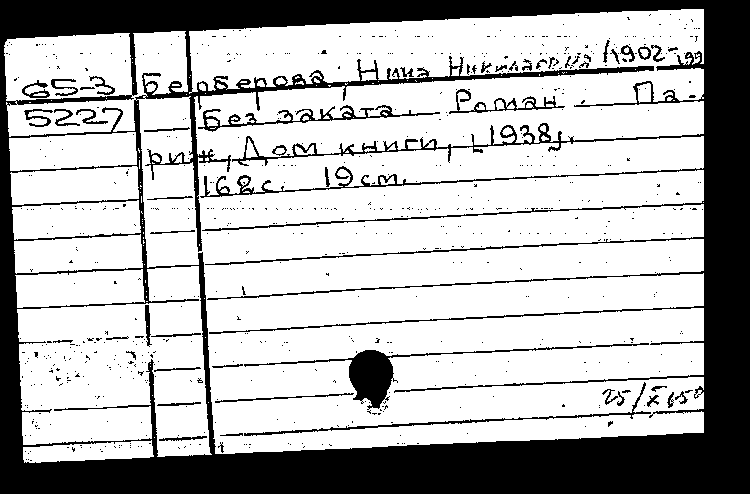 65-3 Берберова, Нина Николаевна (1902-199
5227 Без заката. Роман. Па-
риж, Дом книги, [1938].
162 с. 19 см.
25/X 65